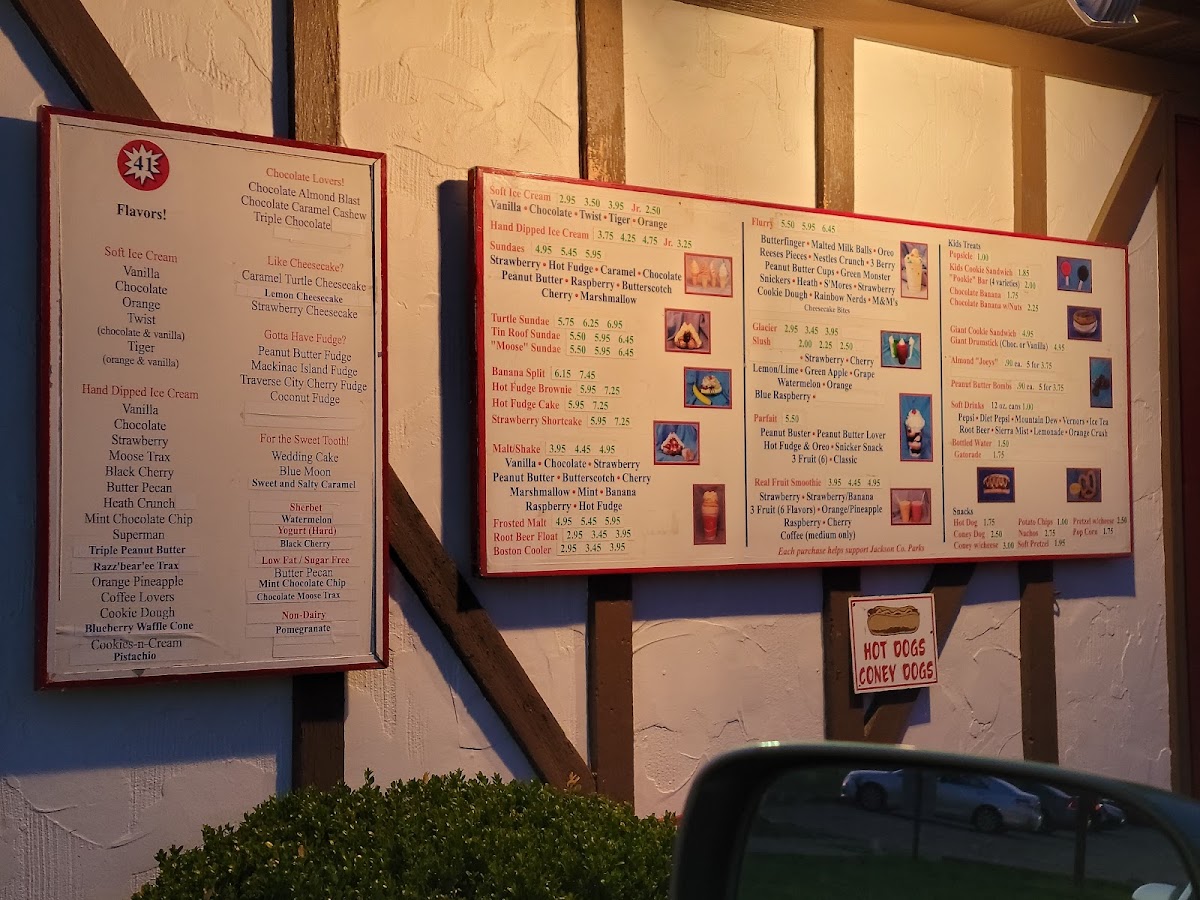 41
Flavors!
Soft Ice Cream
Vanilla
Chocolate
Orange
Twist
(chocolate & vanilla)
Tiger
(orange & vanilla)
Hand Dipped Ice Cream
Vanilla
Chocolate
Strawberry
Moose Trax
Black Cherry
Butter Pecan
Heath Crunch
Mint Chocolate Chip
Superman
Triple Peanut Butter
Razz'bear'ee Trax
Orange Pineapple
Coffee Lovers
Cookie Dough
Blueberry Waffle Cone
Cookies-n-Cream
Pistachio
Chocolate Lovers!
Chocolate Almond Blast
Chocolate Caramel Cashew
Triple Chocolate
Like Cheesecake?
Caramel Turtle Cheesecake
Lemon Cheesecake
Strawberry Cheesecake
Gotta Have Fudge?
Peanut Butter Fudge
Mackinac Island Fudge
Traverse City Cherry Fudge
Coconut Fudge
For the Sweet Tooth!
Wedding Cake
Blue Moon
Sweet and Salty Caramel
Sherbet
Watermelon
Yogurt (Hard)
Black Cherry
Low Fat / Sugar Free
Butter Pecan
Mint Chocolate Chip
Chocolate Moose Trax
Non-Dairy
Pomegranate
Soft Ice Cream 2.95 3.50 3.95 Jr. 2.50
Vanilla • Chocolate • Twist • Tiger • Orange
Hand Dipped Ice Cream 3.75 4.25 4.75 Jr. 3.25
Sundaes 4.95 5.45 5.95
Strawberry • Hot Fudge • Caramel • Chocolate
Peanut Butter • Raspberry • Butterscotch
Cherry • Marshmallow
Turtle Sundae 5.75 6.25 6.95
Tin Roof Sundae 5.50 5.95 6.45
"Moose" Sundae 5.50 5.95 6.45
Banana Split 6.15 7.45
Hot Fudge Brownie 5.95 7.25
Hot Fudge Cake 5.95 7.25
Strawberry Shortcake 5.95 7.25
Malt/Shake 3.95 4.45 4.95
Vanilla • Chocolate • Strawberry
Peanut Butter • Butterscotch • Cherry
Marshmallow • Mint • Banana
Raspberry • Hot Fudge
Frosted Malt 4.95 5.45 5.95
Root Beer Float 2.95 3.45 3.95
Boston Cooler 2.95 3.45 3.95
Flurry 5.50 5.95 6.45
Butterfinger • Malted Milk Balls • Oreo
Reeses Pieces • Nestles Crunch • 3 Berry
Peanut Butter Cups • Green Monster
Snickers • Heath • S'Mores • Strawberry
Cookie Dough • Rainbow Nerds • M&M's
Cheesecake Bites
Glacier 2.95 3.45 3.95
Slush 2.00 2.25 2.50
• Strawberry • Cherry
Lemon/Lime • Green Apple • Grape
Watermelon • Orange
Blue Raspberry •
Parfait 5.50
Peanut Buster • Peanut Butter Lover
Hot Fudge & Oreo • Snicker Snack
3 Fruit (6) • Classic
Real Fruit Smoothie 3.95 4.45 4.95
Strawberry • Strawberry/Banana
3 Fruit (6 Flavors) • Orange/Pineapple
Raspberry • Cherry
Coffee (medium only)
Each purchase helps support Jackson Co. Parks
Kids Treats
Popsicle 1.00
Kids Cookie Sandwich 1.85
"Pookie" Bar (4 varieties) 2.00
Chocolate Banana 1.75
Chocolate Banana w/Nuts 2.25
Giant Cookie Sandwich 4.95
Giant Drumstick (Choc. or Vanilla) 4.95
Almond "Joeys" .90 ea. 5 for 3.75
Peanut Butter Bombs .90 ea. 5 for 3.75
Soft Drinks 12 oz. cans 1.00
Pepsi • Diet Pepsi • Mountain Dew • Vernors • Ice Tea
Root Beer • Sierra Mist • Lemonade • Orange Crush
Bottled Water 1.50
Gatorade 1.75
Snacks
Hot Dog 1.75 Potato Chips 1.00 Pretzel w/cheese 2.50
Coney Dog 2.50 Nachos 2.75 Pop Corn 1.75
Coney w/cheese 3.00 Soft Pretzel 1.95
HOT DOGS
CONEY DOGS